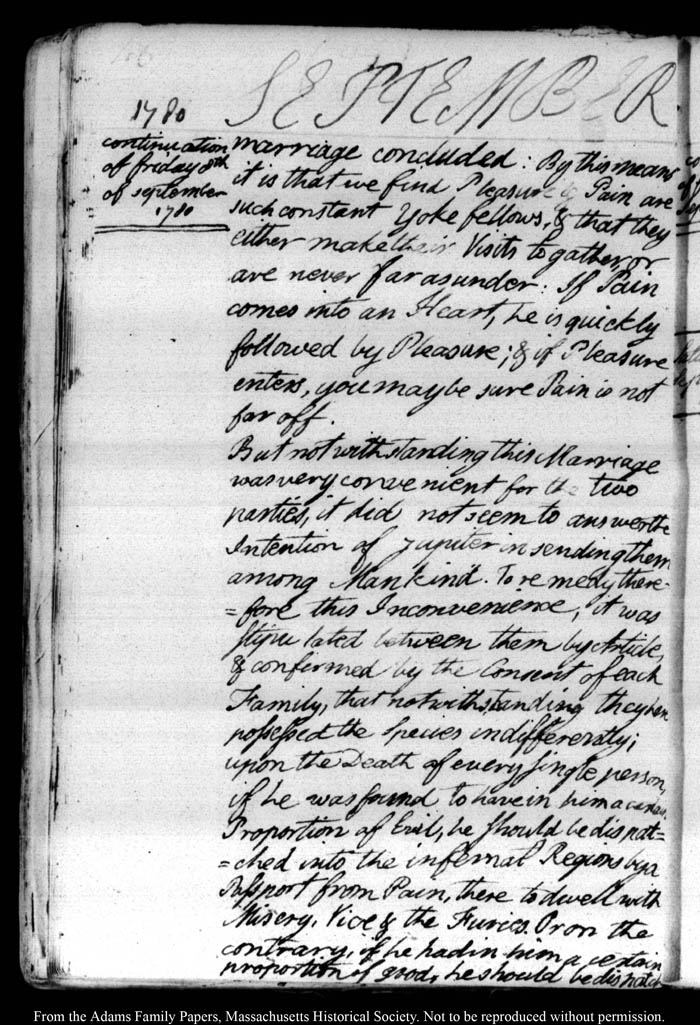 SEPTEMBER
1780
continuation
of friday 8th
of september
1780
marriage concluded: By this means
it is that we find Pleasure & Pain are
such constant Yoke fellows, & that they
either make their Visits to gather, or
are never far asunder: If Pain
comes into an Heart, he is quickly
followed by Pleasure; & if Pleasure
enters, you may be sure Pain is not
far off.
But notwithstanding this Marriage
was very convenient for the two
parties, it did not seem to answer the
Intention of Jupiter in sending them
among Mankind. To remedy there-
=fore this Inconvenience, it was
stipulated between them by Article,
& confirmed by the Consent of each
Family, that notwithstanding they here
possessed the Species indifferently;
upon the Death of every single person,
if he was found to have in him a
Proportion of Evil, he should be dispat=
=ched into the infernal Regions by a
Passport from Pain, there to dwell with
Misery, Vice & the Furies. Or on the
contrary, if he had in him a certain
proportion of good, he should be dispatch
From the Adams Family Papers, Massachusetts Historical Society. Not to be reproduced without permission.